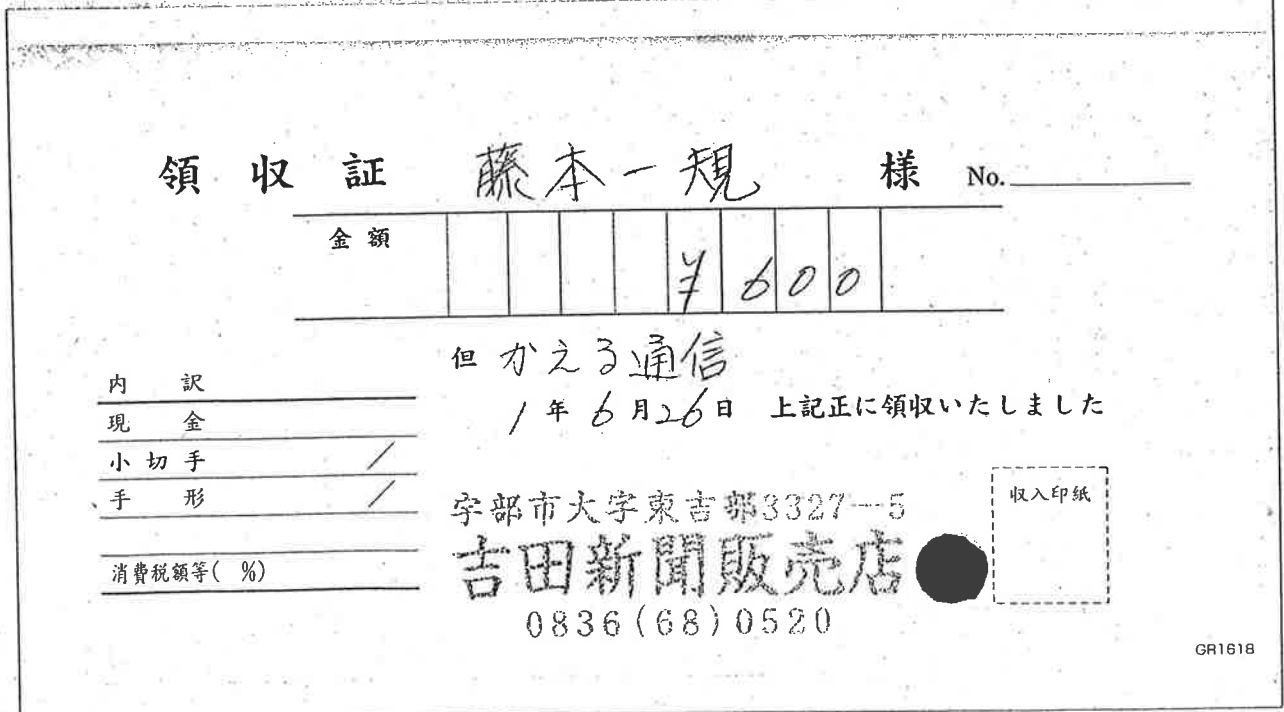 領収証 藤本一規 様 No.
金額 ¥600
但 かえる通信
1年6月26日 上記正に領収いたしました
内訳
現金
小切手 /
手形 /
消費税額等( %)
収入印紙
宇部市大字東吉部3327-5
吉田新聞販売店
0836(68)0520
GR1618